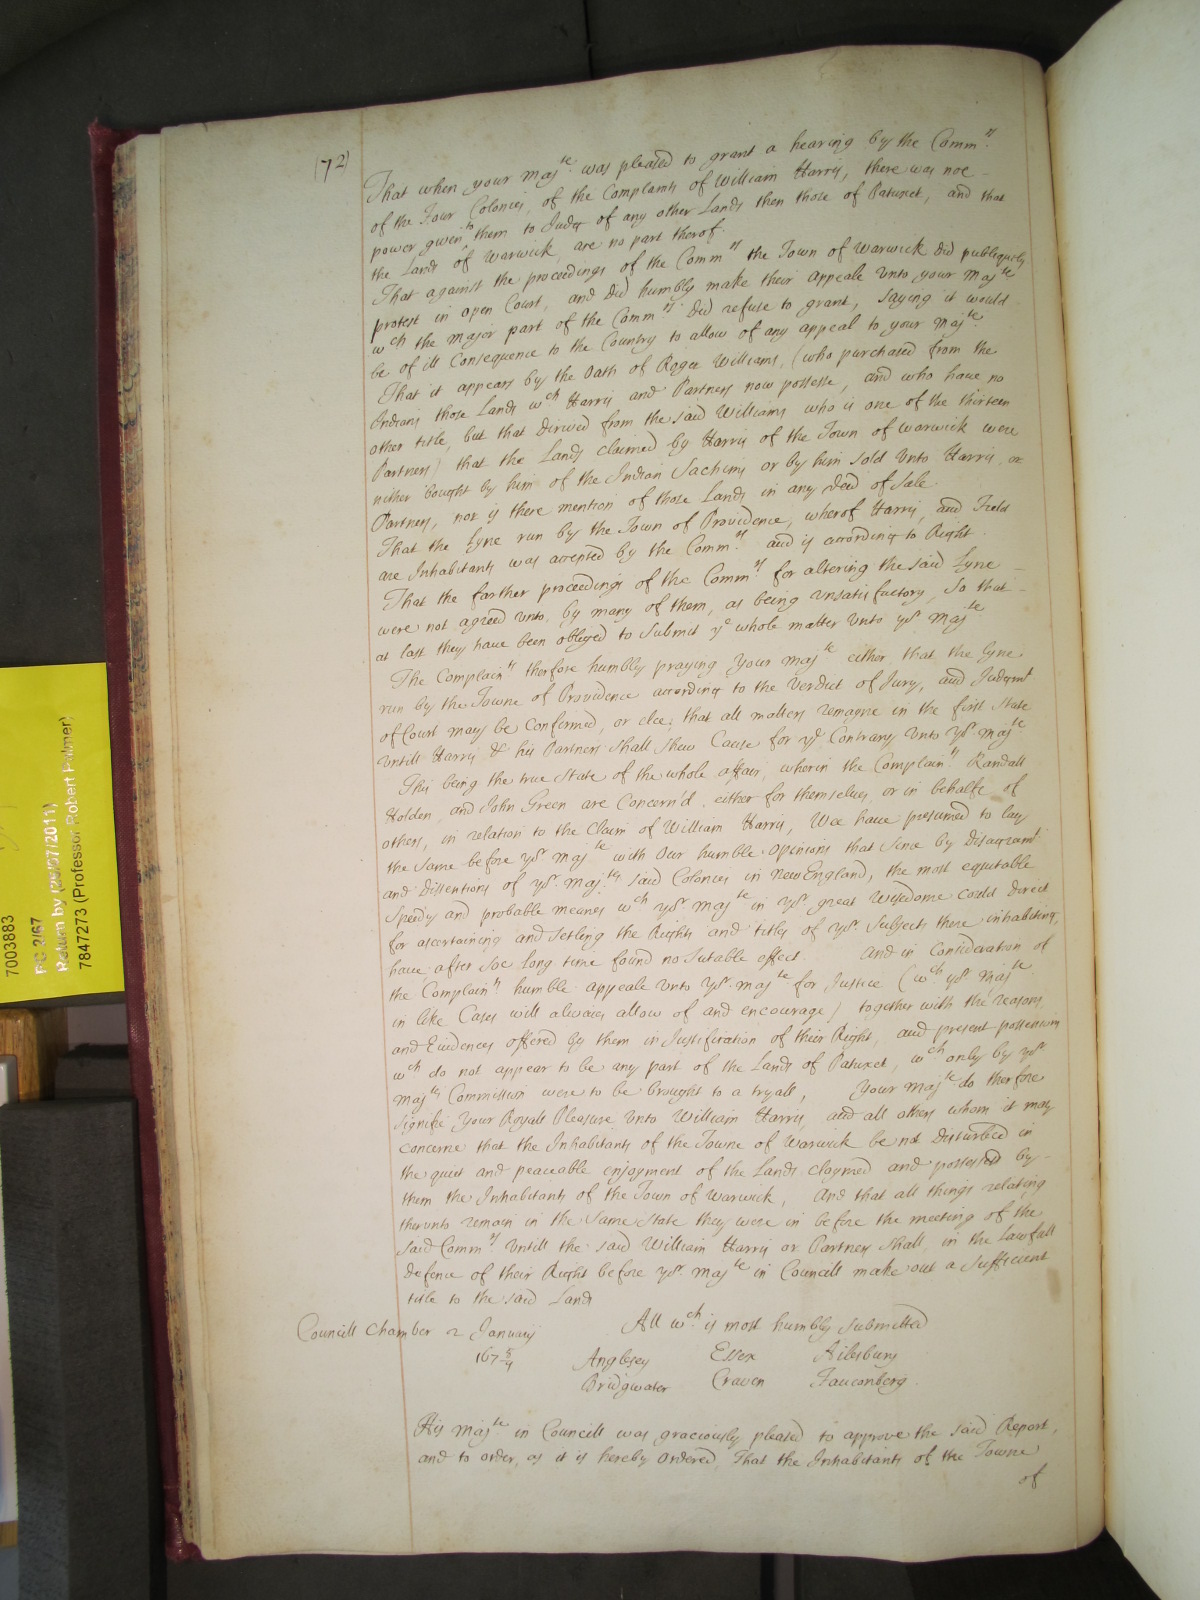 (72)
That when your Maj.te was pleased to grant a hearing by the Comm.rs
of the Four Colonies, of the Complaints of William Harris, there was noe -
power given to them to Judge of any other Lands then those of Patuxet, and that
the Land of Warwick are no part therof.
That against the proceedings of the Comm.rs the Town of Warwick did publiquely
protest in open Court, and did humbly make their Appeale unto your Maj.te
w.ch the Major part of the Comm.rs did refuse to grant, saying it would
be of ill Consequence to the Country to allow of any appeal to your Maj.te
That it appears by the Oath of Roger Williams, (who purchased from the
Indians those Lands w.ch Harris and Partners now possesse, and who have no
other title, but that derived from the said Williams who is one of the thirteen
Partners) that the Lands claimed by Harris of the Town of Warwick were
neither bought by him of the Indian Sachims or by him sold unto Harris, or
Partners, nor is there mention of those Lands in any Deed of Sale.
That the Lyne run by the Town of Providence, wherof Harris, and Field
are Inhabitants was accepted by the Comm.rs and is according to Right.
That the farther proceedings of the Comm.rs for altering the said Lyne -
were not agreed unto, by many of them, as being unsatisfactory, So that -
at last they have been obliged to Submit y.e whole matter unto yo.r Maj.te
The Complain.ts therfore humbly praying Your Maj.te either that the Lyne
run by the Towne of Providence according to the Verdict of Jury, and Judgm.t
of Court may be Confirmed, or else, that all matters remayne in the first State
untill Harris & his Partners shall shew Cause for y.e Contrary unto yo.r Maj.te
This being the true State of the whole affair, wherin the Complain.ts Randall
Holden, and John Green are Concern'd, either for themselves, or in behalfe of
others, in relation to the Claim of William Harris, Wee have presumed to lay
the same before yo.r Maj.te with Our humble Opinions that since by Disagreem.t
and Dissentions of yo.r Maj.tes said Colonies in New England, the most equitable
speedy and probable meanes w.ch yo.r Maj.te in yo.r great Wisedome could direct
for ascertaining and setling the Rights and titles of yo.r Subjects there inhabiting,
have after soe long time found no sutable effect. And in Consideration of
the Complain.ts humble appeale unto yo.r Maj.te for Justice (w.ch yo.r Maj.te
in like Cases will alwaies allow of and encourage) together with the reasons,
and Evidences offered by them in Justification of their Right, and present possession
w.ch do not appear to be any part of the Lands of Patuxet, w.ch only by yo.r
Maj.ts Commission were to be brought to a tryall, Your Maj.te do therfore
signifie Your Royall Pleasure unto William Harris, and all others whom it may
concerne that the Inhabitants of the Towne of Warwick be not disturbed in
the quiet and peaceable enjoyment of the Lands claymed and possessed by -
them the Inhabitants of the Town of Warwick, And that all things relating
therunto remain in the same State they were in before the meeting of the
said Comm.rs untill the said William Harris or Partners shall, in the Lawfull
defence of their Right before yo.r Maj.te in Councill make out a Sufficient
title to the said Lands
All w.ch is most humbly submitted
Councill Chamber 2 January
167 8/9
Anglesey Essex Ailesbury
Bridgwater Craven Fauconberg.
His Maj.te in Councill was graciously pleased to approve the said Report,
and to order, as it is hereby Ordered, That the Inhabitants of the Towne
of
7003883
PC 2/67
Return by (26/07/2011)
7847273 (Professor Robert Palmer)